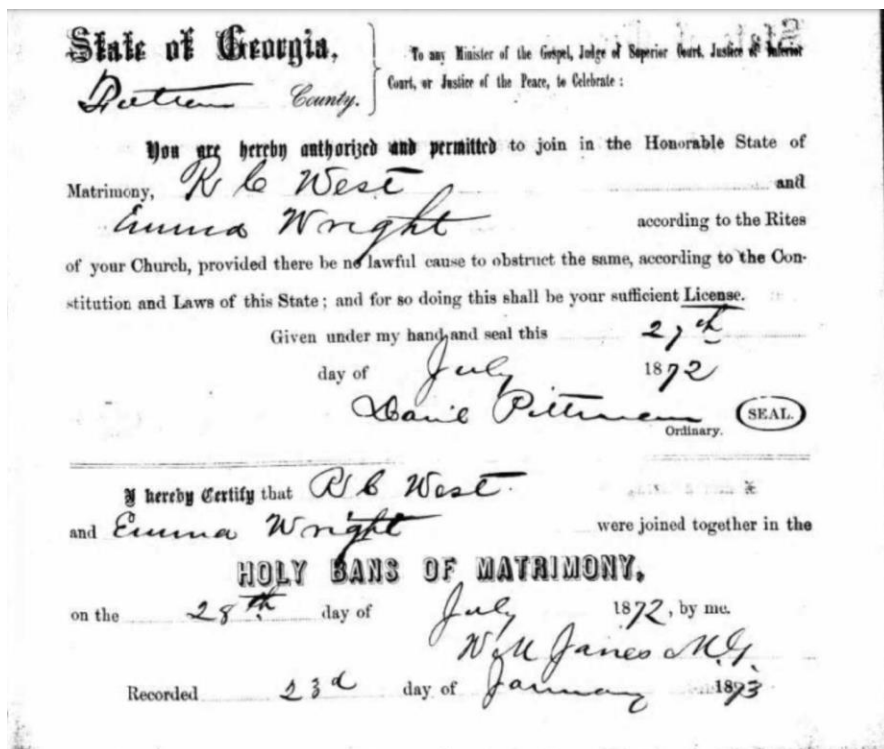 State of Georgia,
To any Minister of the Gospel, Judge of Superior Court, Justice of Inferior
Fulton County.
Court, or Justice of the Peace, to Celebrate :
You are hereby authorized and permitted to join in the Honorable State of
Matrimony, R C West and
Emma Wright according to the Rites
of your Church, provided there be no lawful cause to obstruct the same, according to the Con-
stitution and Laws of this State ; and for so doing this shall be your sufficient License.
Given under my hand and seal this 27th
day of July 1872
Daniel Pittman SEAL.
Ordinary.
I hereby Certify that R C West.
and Emma Wright were joined together in the
HOLY BANS OF MATRIMONY,
on the 28th day of July 1872, by me.
W M Janes M.G.
Recorded 23d day of January 1873